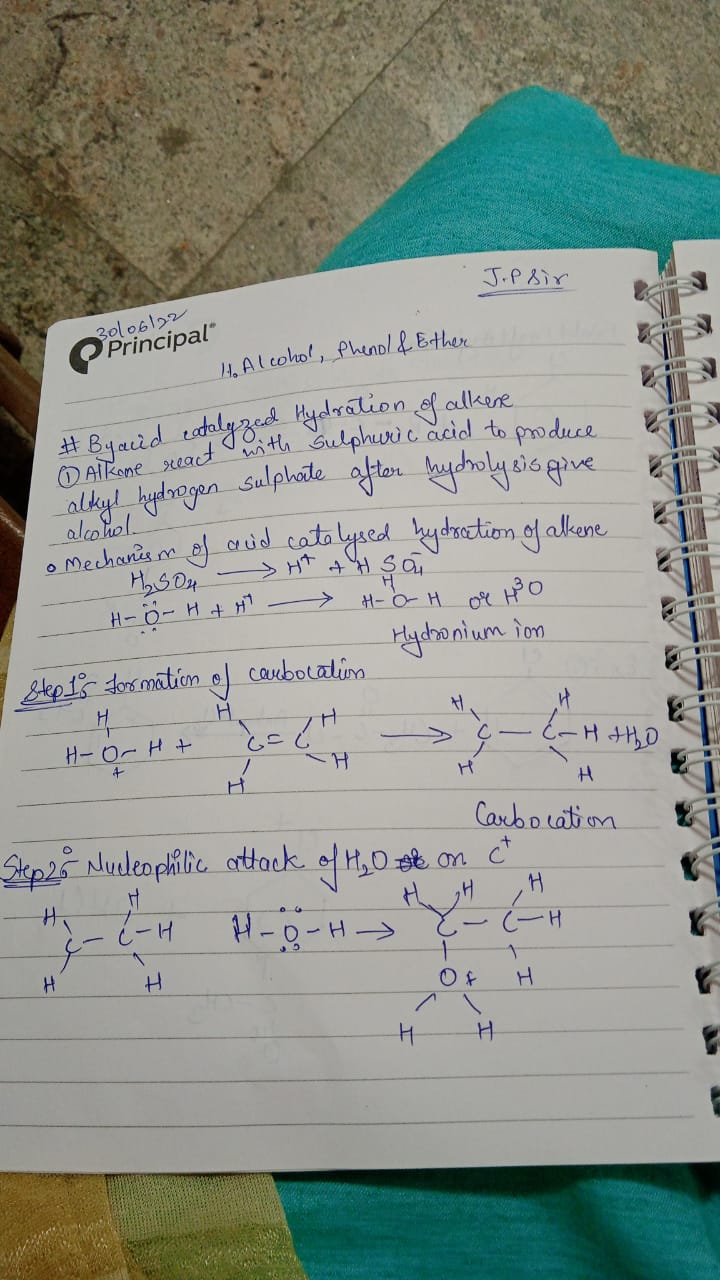 J.P Sir
30/06/22
Principal®
11. Alcohol, Phenol & Ether
# By acid catalyzed Hydration of alkene
① Alkene react with Sulphuric acid to produce
alkyl hydrogen sulphate after hydrolysis give
alcohol.
o Mechanism of acid catalysed hydration of alkene
H₂SO₄ ⟶ H⁺ + H SO₄⁻
H
H-Ö-H + H⁺ ⟶ H-O-H or H³O
Hydronium ion
Step 1:- formation of carbocation
H H H H H
H-O-H + C=C ⟶ C-C-H + H₂O
+ H H H H
Carbocation
Step 2:- Nucleophilic attack of H₂O on C⁺
H H H H H
C-C-H H-Ö-H → C-C-H
H H O+ H
H H